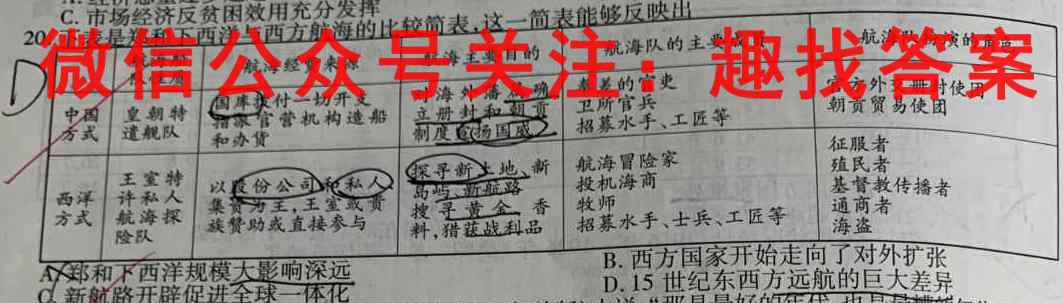 C. 市场经济反贫困效用充分发挥
20. 下表是郑和下西洋与西方航海的比较简表,这一简表能够反映出
微信公众号关注：趣找答案
D
航海经费来源
航海队的主要
中国方式
皇朝特遣舰队
国库拨付一切开支
指派官营机构造船
和办货
立册封和朝贡
制度宣扬国威
卫所官兵
招募水手、工匠等
官方外交册封使团
朝贡贸易使团
西洋方式
王室特许私人航海探险队
以股份公司和私人
集资为主,王室或贵
族赞助或直接参与
探寻新土地、新
岛屿、新航路
搜寻黄金、香
料,猎获战利品
航海冒险家
投机海商
牧师
招募水手、士兵、工匠等
征服者
殖民者
基督教传播者
通商者
海盗
A. 郑和下西洋规模大影响深远
B. 西方国家开始走向了对外扩张
C. 新航路开辟促进全球一体化
D. 15 世纪东西方远航的巨大差异